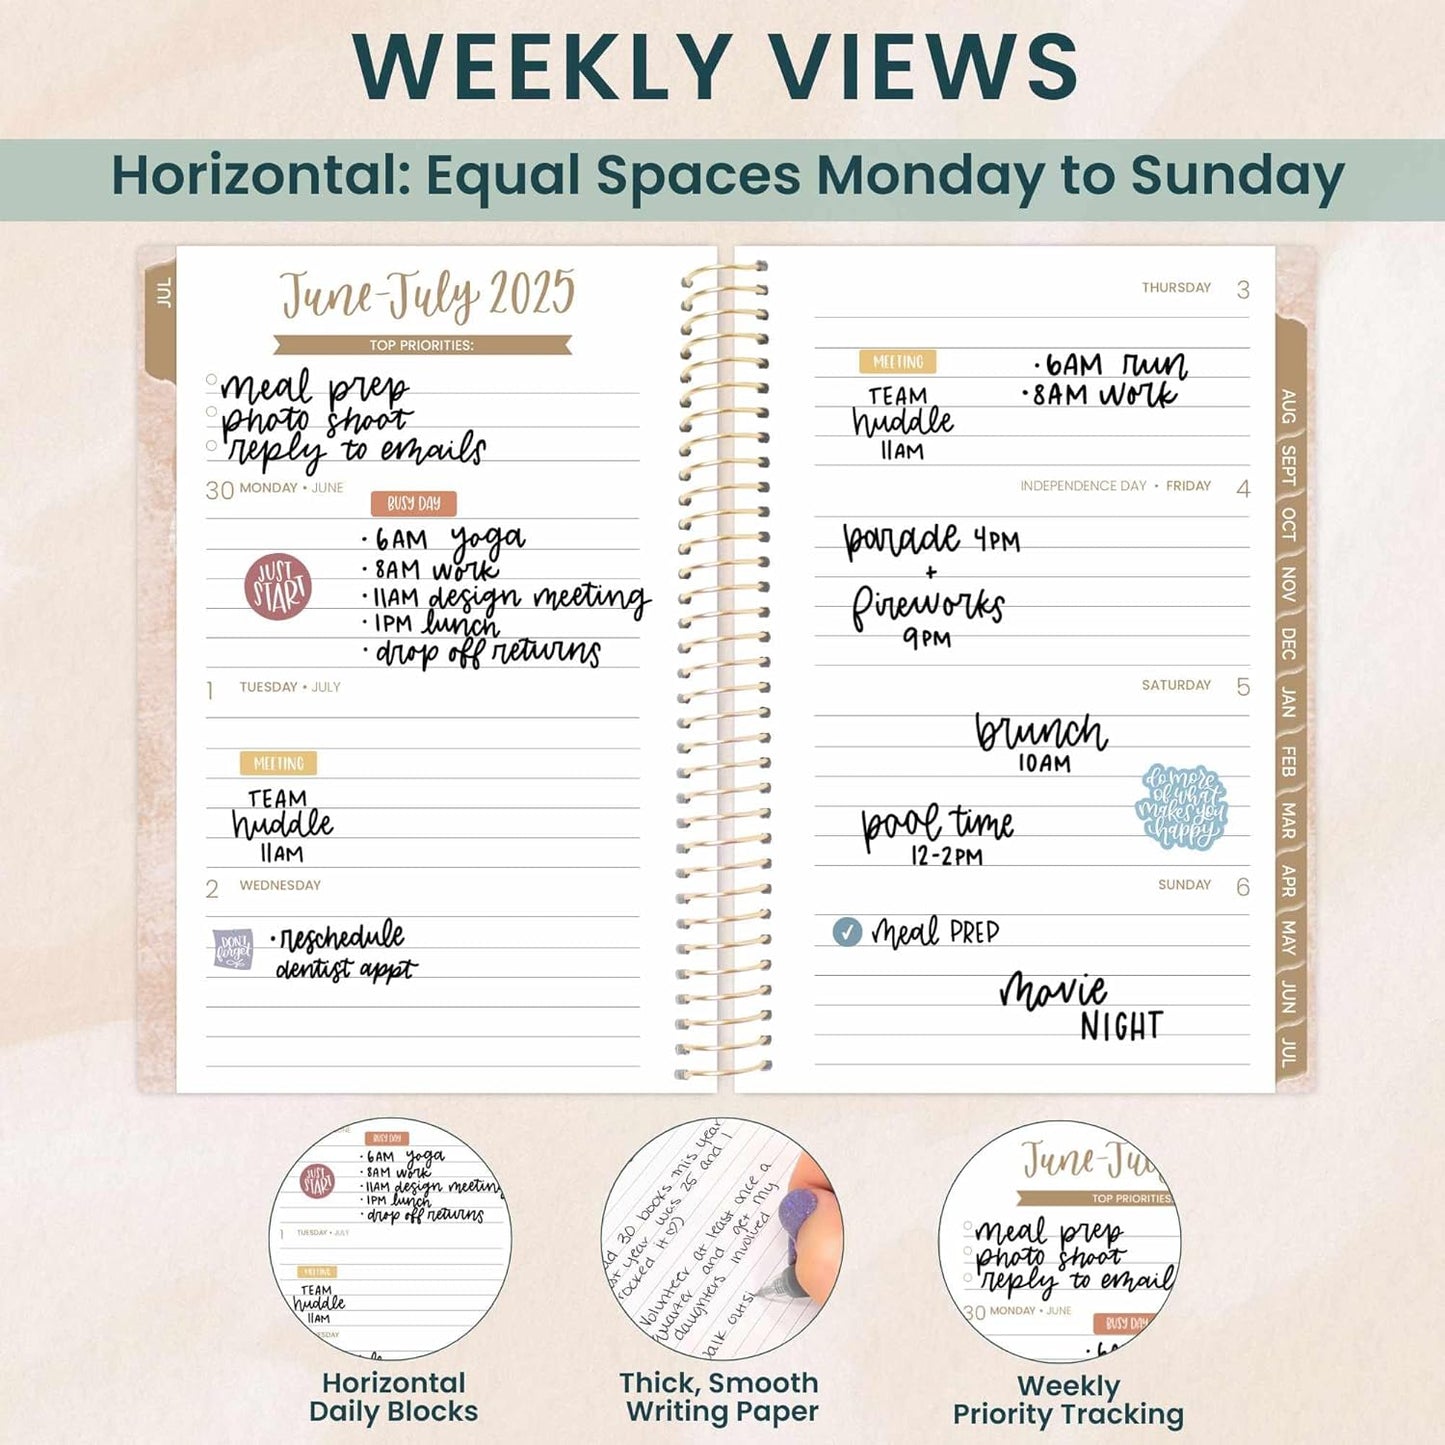 WEEKLY VIEWS
Horizontal: Equal Spaces Monday to Sunday
JUL
June-July 2025
TOP PRIORITIES:
meal prep
photo shoot
reply to emails
30 MONDAY • JUNE
BUSY DAY
JUST
START
• 6AM yoga
• 8AM work
• 11AM design meeting
• 1PM lunch
• drop off returns
1 TUESDAY • JULY
MEETING
TEAM
huddle
11AM
2 WEDNESDAY
DON'T
forget
• reschedule
dentist appt
THURSDAY 3
MEETING
TEAM
huddle
11AM
• 6AM run
• 8AM work
INDEPENDENCE DAY • FRIDAY 4
parade 4PM
+
fireworks
9PM
SATURDAY 5
brunch
10AM
pool time
12-2PM
do more
of what
makes you
happy
SUNDAY 6
meal PREP
movie
NIGHT
AUG
SEPT
OCT
NOV
DEC
JAN
FEB
MAR
APR
MAY
JUN
JUL
BUSY DAY
JUST
START
• 6AM yoga
• 8AM work
• 11AM design meeting
• 1PM lunch
• drop off returns
1 TUESDAY • JULY
MEETING
TEAM
huddle
11AM
Horizontal
Daily Blocks
30 books this year
year was 25 and I
rocked it ♡))
Volunteer at least once a
quarter and get my
daughters involved
Thick, Smooth
Writing Paper
June-July
TOP PRIORITIES
meal prep
photo shoot
reply to email
30 MONDAY • JUNE
BUSY DAY
Weekly
Priority Tracking